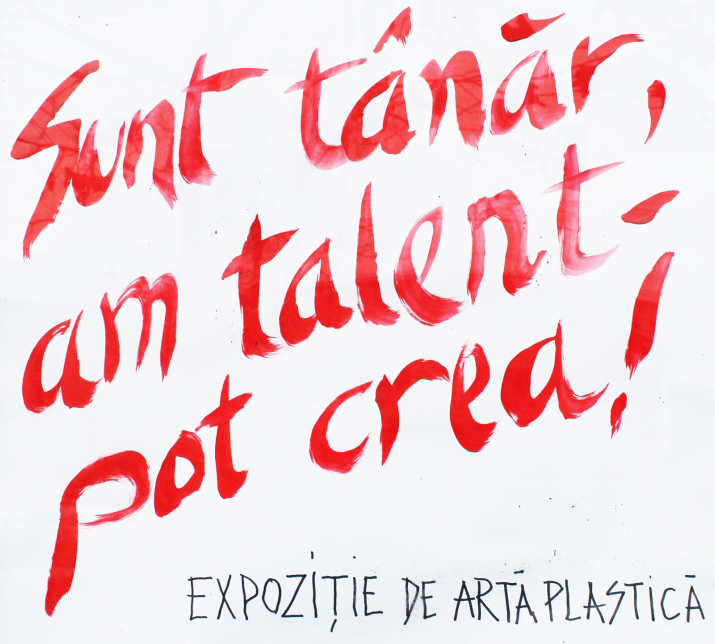 Sunt tânăr,
am talent -
pot crea!
EXPOZIȚIE DE ARTĂ PLASTICĂ